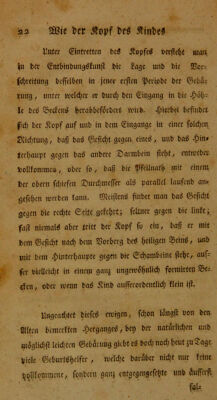 22 Wie der Kopf des Kindes
Unter Eintretten des Kopfes versteht man
in der Entbindungskunst die Lage und die Vor-
schreitung desselben in jener ersten Periode der Gebäh-
rung, unter welcher er durch den Eingang in die Höh-
le des Beckens herabbefördert wird. Hierbei befindet
sich der Kopf auf und in dem Eingange in einer solchen
Richtung, daß das Gesicht gegen eines, und das Hin-
terhaupt gegen das andere Darmbein steht, entweder
vollkommen, oder so, daß die Pfeilnath mit einem
der obern schiefen Durchmesser als parallel laufend an-
gesehen werden kann. Meistens findet man das Gesicht
gegen die rechte Seite gekehrt; seltner gegen die linke;
fast niemals aber tritt der Kopf so ein, daß er mit
dem Gesicht nach dem Vorberg des heiligen Beins, und
mit dem Hinterhaupte gegen die Schambeine stehe, auf-
ser vielleicht in einem ganz ungewöhnlich formirten Be-
cken, oder wenn das Kind ausserordentlich klein ist.
Ungeachtet dieses ewigen, schon längst von den
Alten bemerkten Herganges, bey der natürlichen und
möglichst leichten Gebärung giebt es doch noch heut zu Tage
viele Geburtshelfer, welche darüber nicht nur keine
vollkommene, sondern ganz entgegengesetzte und äusserst
fal-